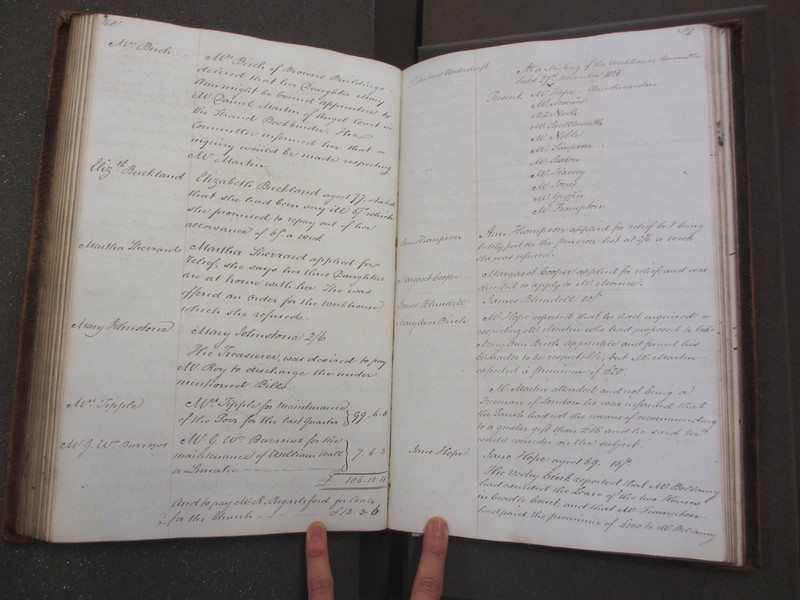 Mrs. Birch
Mrs. Birch of Browns Buildings
desired that her Daughter Mary
Ann might be bound apprentice to
Mr. Daniel Martin of Angel Court in
the Strand Bookbinder. The
Committee informed her that an
inquiry would be made respecting
Mr. Martin.
Elizth. Buckland
Elizabeth Buckland aged 77, stated
that she had been very ill
she promised to repay out of her
allowance of a week
Martha Sherrard
Martha Sherrard applied for
relief, she says her three Daughters
are at home with her. She was
offered an order for the Workhouse,
which she refused.
Mary Johnstone
Mary Johnstone 2/6
The Treasurer was desired to pay
Mr. Roy to discharge the under
mentioned Bills.
Mrs. Tipple
Mrs. Tipple for Maintenance
of the Poor for the last Quarter 99.6.8
Mr. G. Wm. Burrows
Mr. G. Wm. Burrows for the
maintenance of William Wall
a Lunatic 7.6.3
£ 106.12.11
And to pay Mr. R. for
for the Church £12.2.6
At a Meeting of the Workhouse Committee
held 27th November 1824
Present Mr. Hope
Mr. Neale
Mr. Shuttleworth
Mr. Noble
Mr. Simpson
Mr. Harvey
Mr. Jones
Mr. Griffin
Mr. Frampton
Ann Thompson
Ann Thompson applied for relief but being
lately put on the pension list at a week
she was refused.
Margaret Cooper
Margaret Cooper applied for relief and was
desired to apply to Mr.
James Blundell
James Blundell
Mary Ann Birch
Mr. Hope reported that he had inquired
respecting Mr. Martin who had proposed to take
Mary Ann Birch Apprentice and found his
character to be respectable, but Mr. Martin
expected a premium of £20.
Mr. Martin attended and not being a
Freeman of London he was informed that
the Parish had not the means of recommending
to a greater gift than £15 and he said he
would consider on the subject.
Jane Hope
Jane Hope aged 69.
The Vestry Clerk reported that Mr. Bellamy
had executed the Lease of the two Houses
in Beadle Court, and that Mr. Frampton
had paid the premium of £100 to Mr. Bellamy